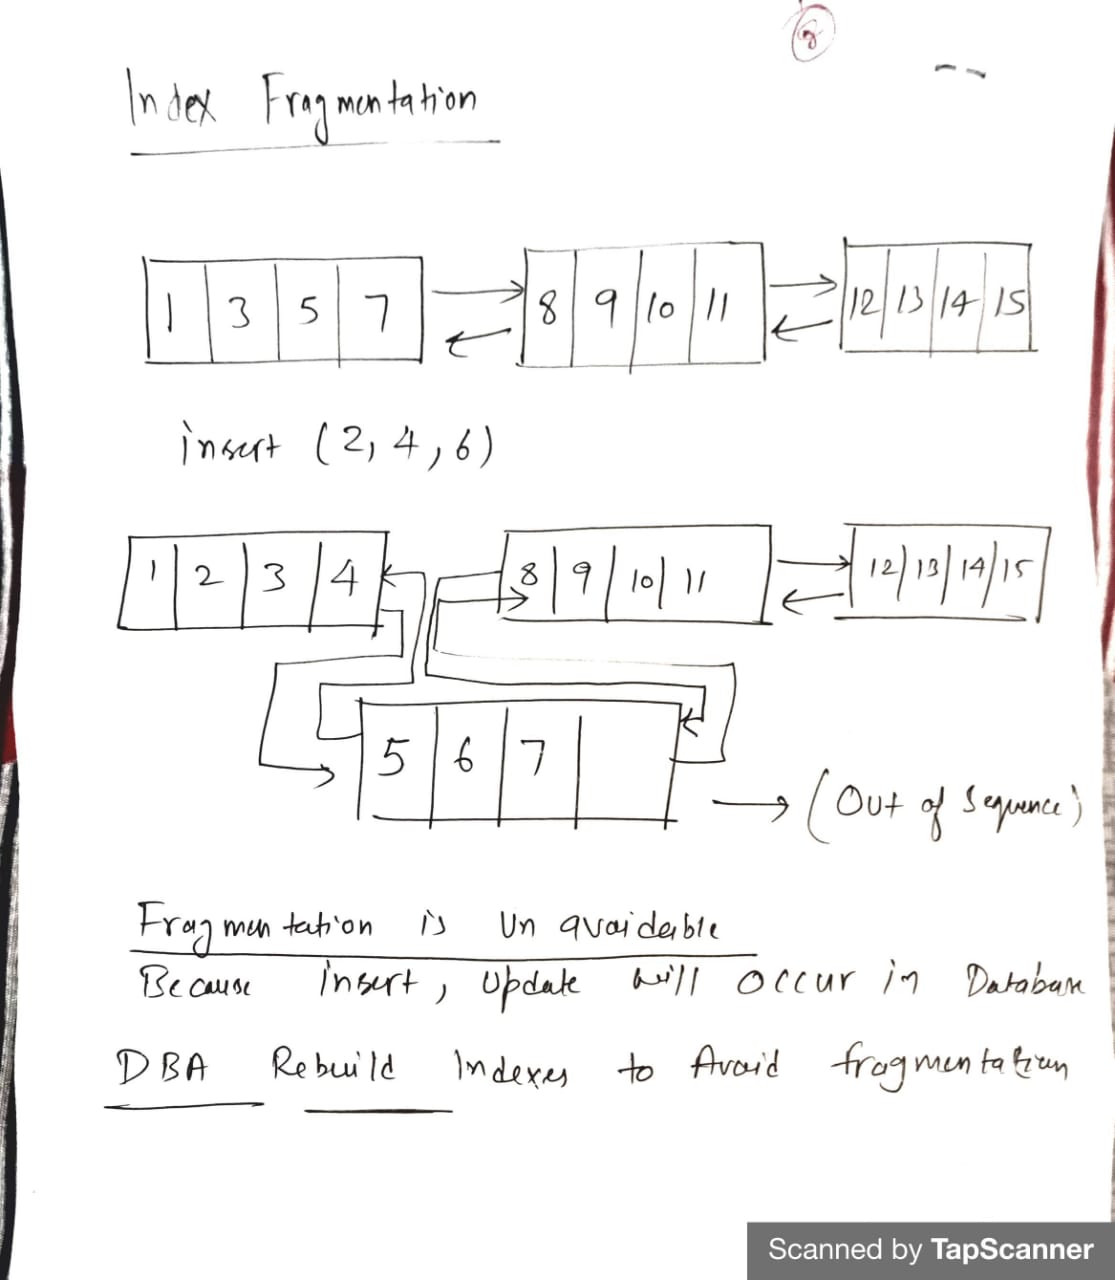 8
Index Fragmentation
1 3 5 7 8 9 10 11 12 13 14 15
insert (2, 4, 6)
1 2 3 4 8 9 10 11 12 13 14 15
5 6 7
(Out of Sequence)
Fragmentation is Un avaidable
Because insert, Update will occur in Database
DBA Rebuild Indexes to Avoid fragmentation
Scanned by TapScanner